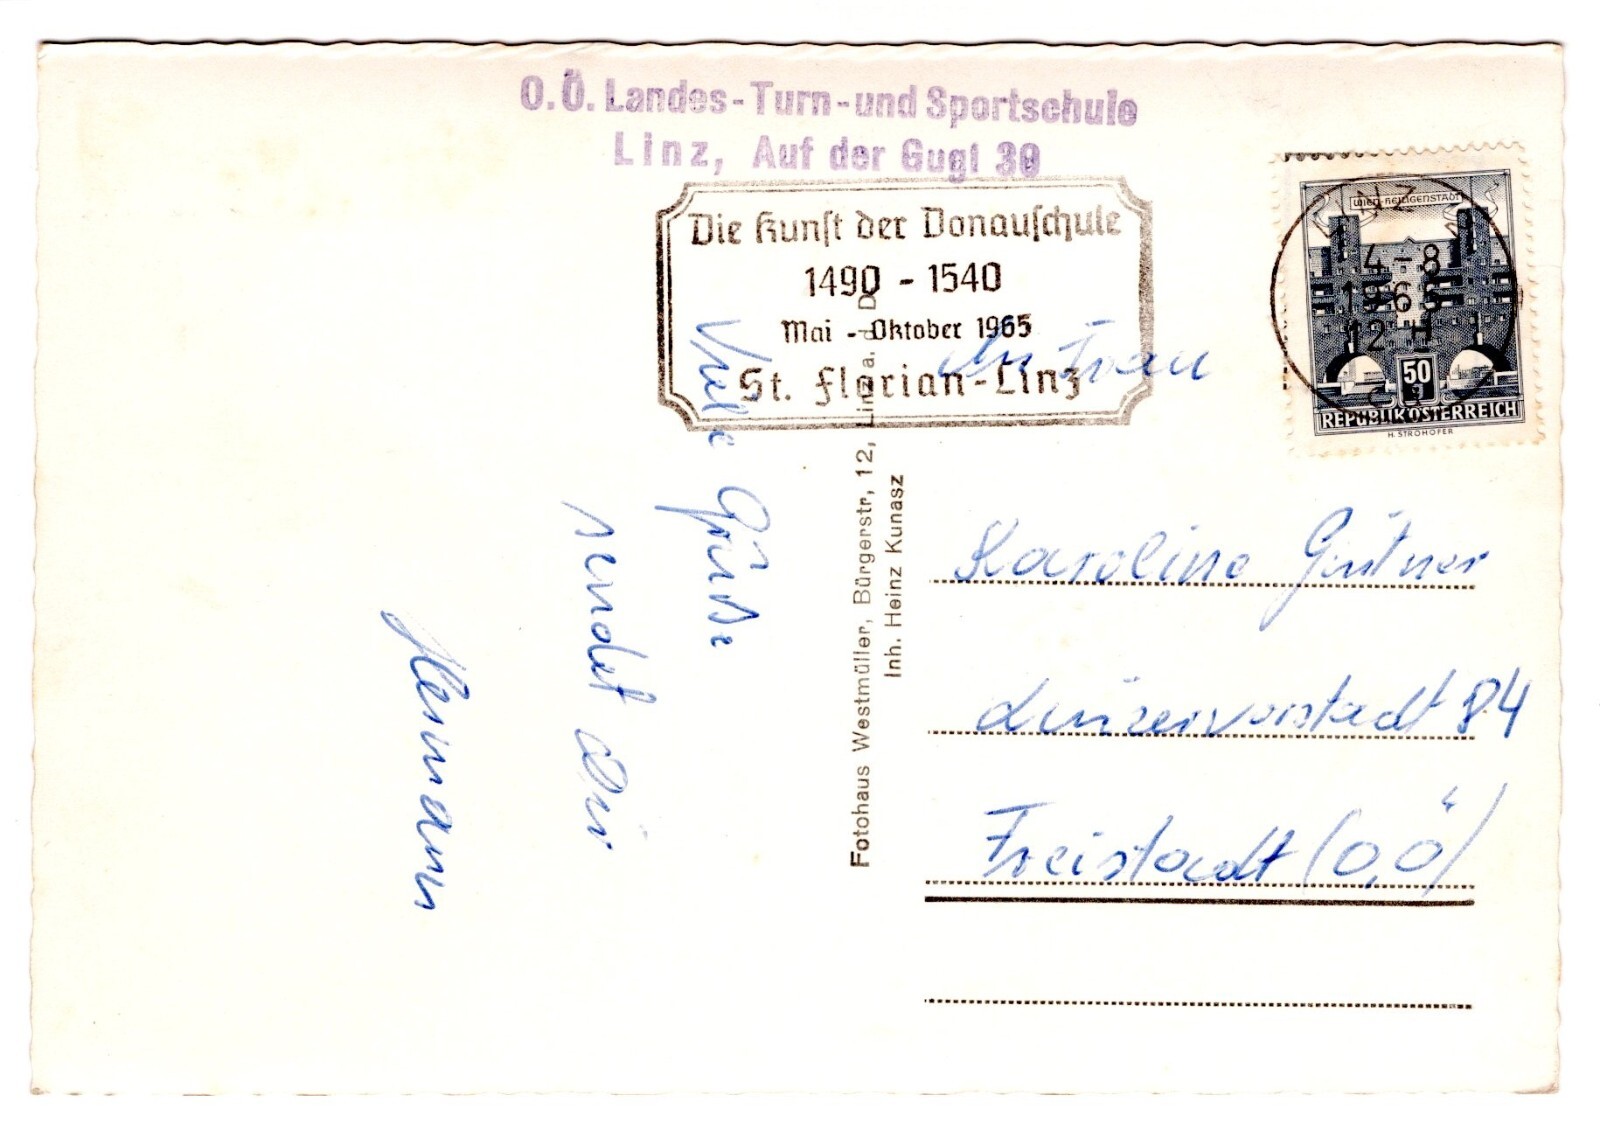 O.Ö. Landes-Turn-und Sportschule
Linz, Auf der Gugl 39
Die Kunst der Donauschule
1490 - 1540
Mai - Oktober 1965
St. Florian-Linz
WIEN-HEILIGENSTADT
LINZ
4-8
1965
12 H
50 g
REPUBLIK ÖSTERREICH
H. STROHOFER
Viele Grüße
sendet Dir
Hermann
Fotohaus Westmüller, Bürgerstr, 12, Linz a. d. D.
Inh. Heinz Kunasz
An Frau
Karoline
Linzervorstadt 84
Freistadt (O,Ö)